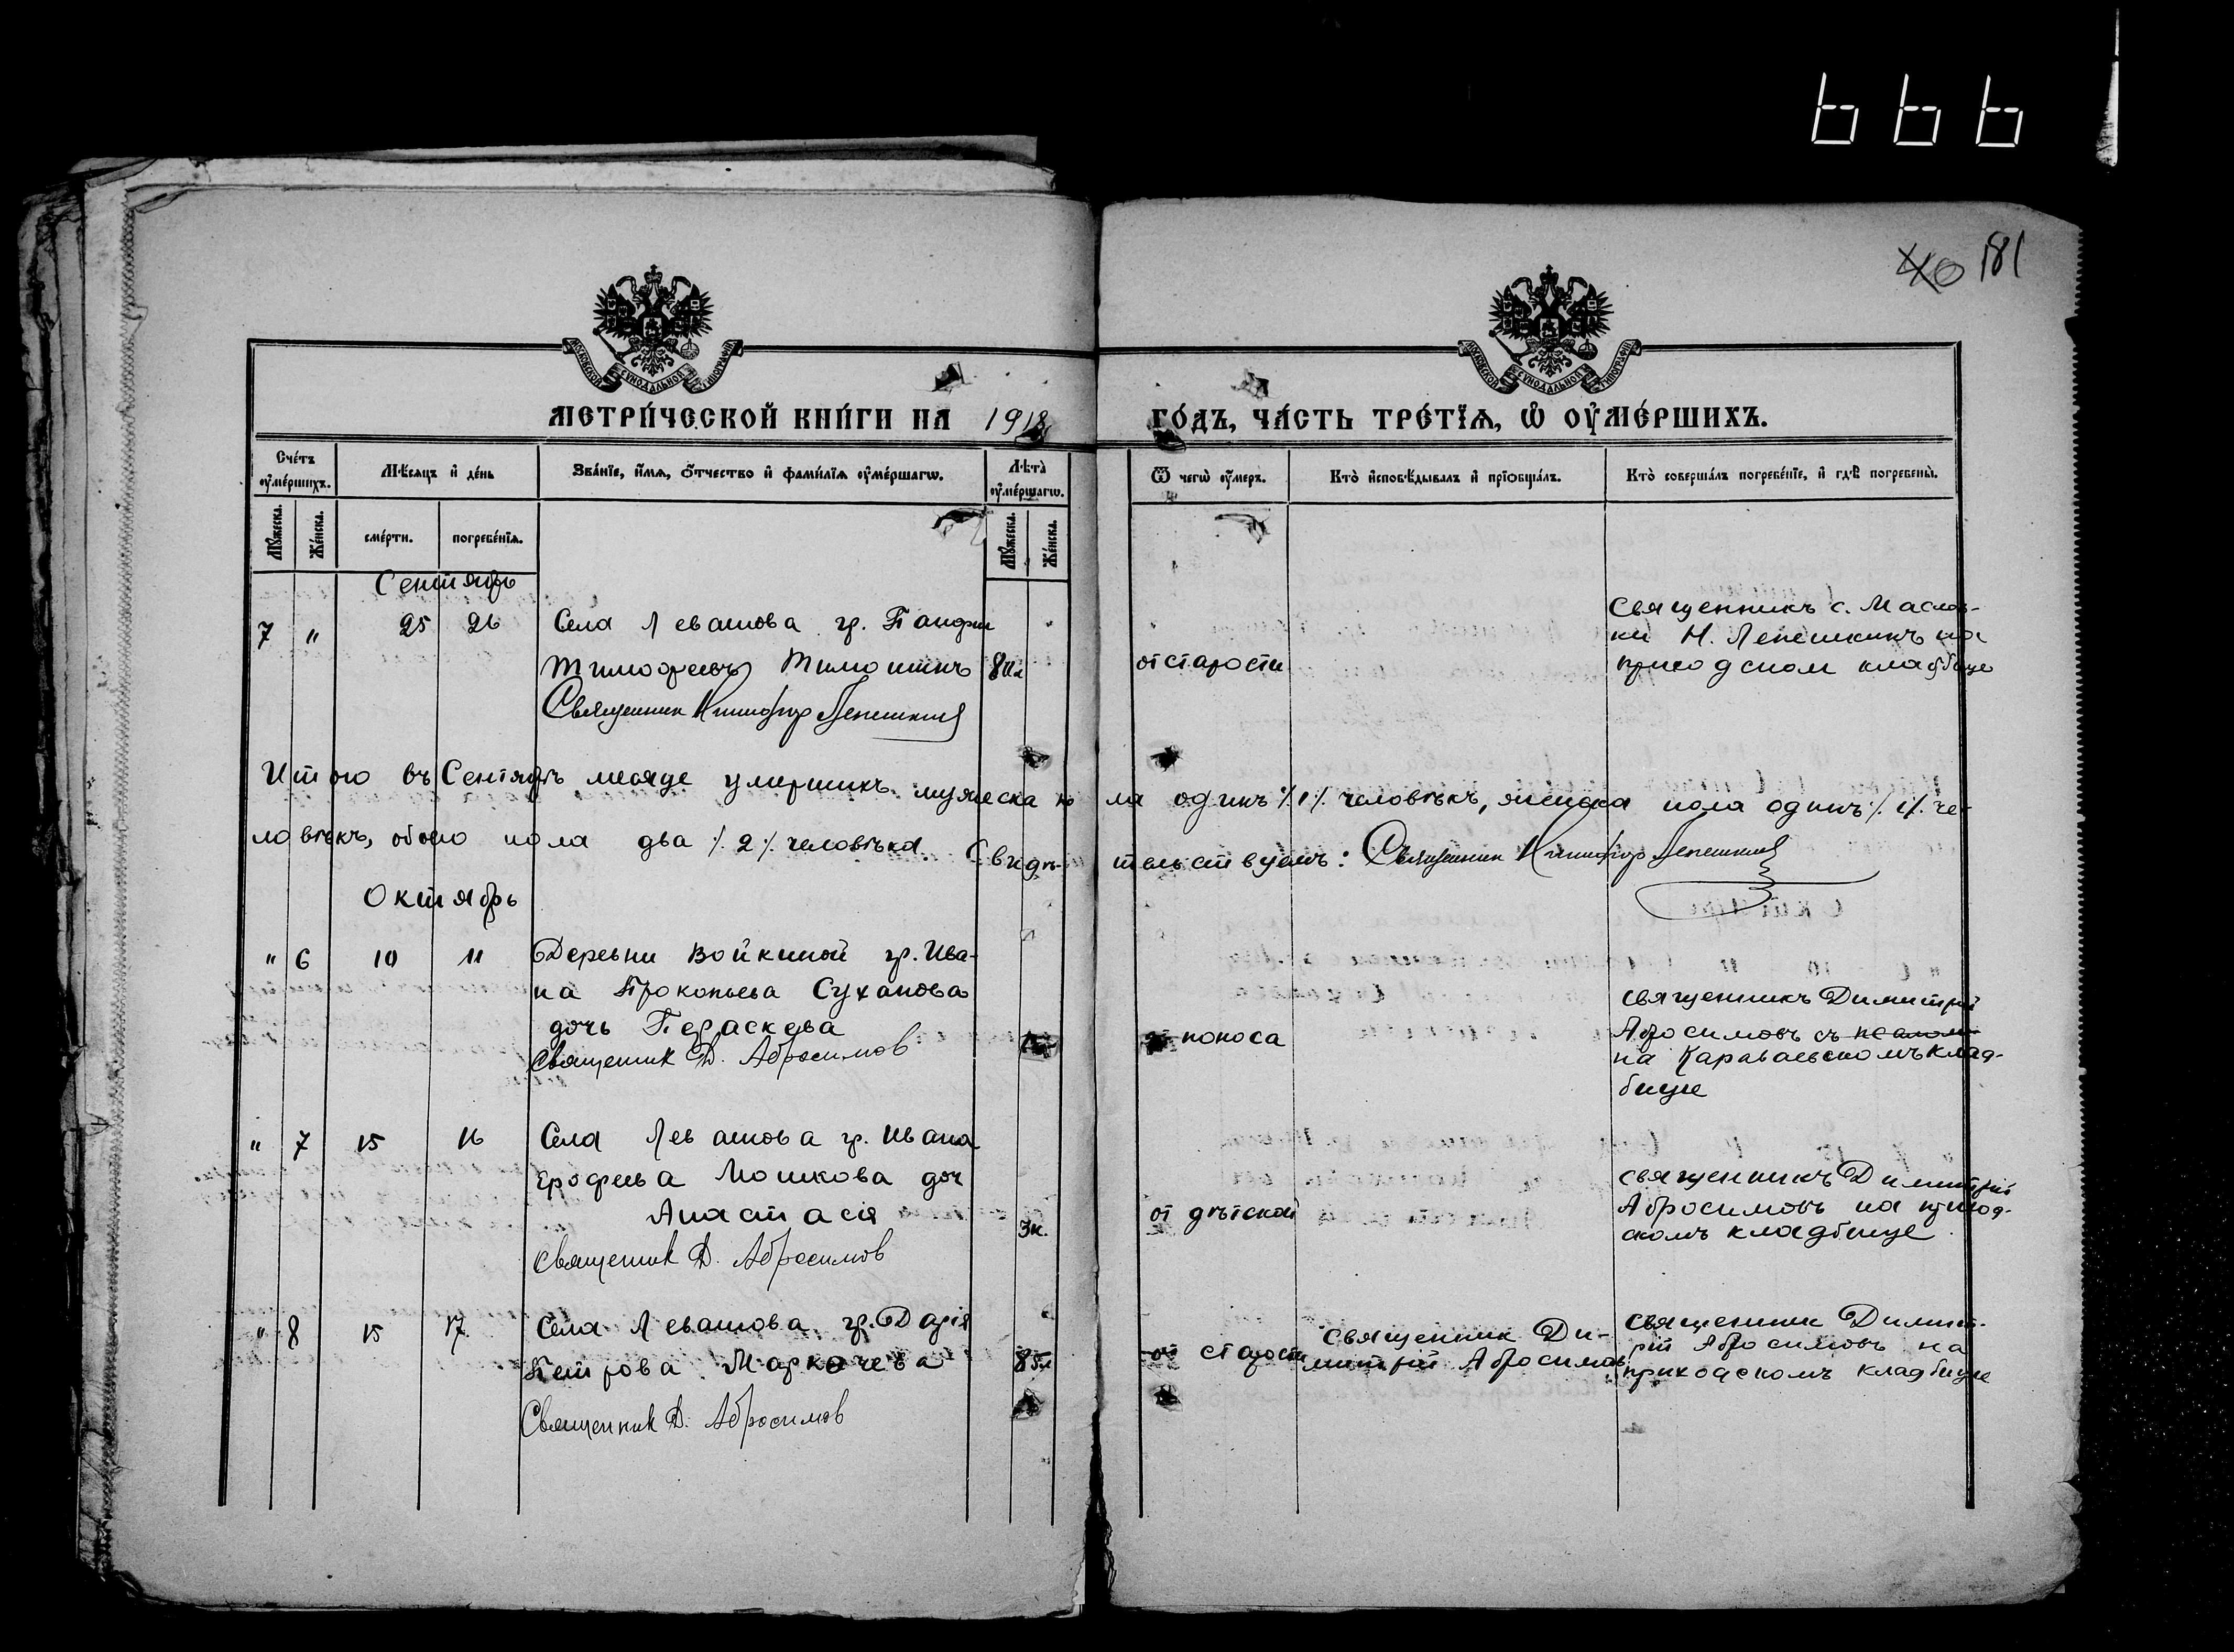 666
40 181
МОСКОВСКОЙ СѴНОДАЛЬНОЙ ТИПОГРАФІИ
МОСКОВСКОЙ СѴНОДАЛЬНОЙ ТИПОГРАФІИ
МЕТРИ́ЧЕСКОЙ КНИ́ГИ НА 1918 ГО́ДЪ, ЧА́СТЬ ТРЕ́ТЇѦ, Ѡ҆ ОУ҆МЕ́РШИХЪ.
Сче́тъ оу҆ме́ршихъ.
Мꙋ́жеска.
Же́нска.
Мѣ́сѧцъ и҆ де́нь
сме́рти.
погребе́нїѧ.
Зва́нїе, и҆́мѧ, ѻ҆́тчество и҆ фамѝлїѧ оу҆ме́ршагѡ.
Лѣ́та̀ оу҆ме́ршагѡ.
Мꙋ́жеска.
Же́нска.
Ѿ чегѡ̀ оу҆́меръ.
Кто̀ и҆сповѣ́дывалъ и҆ прїѡбща́лъ.
Кто̀ соверша́лъ погребе́нїе, и҆ гдѣ̀ погребены̀.
Сентябрь
7 " 25 26
Села Левашова гр. Панфил
Тимофеевъ Тимошинъ
Священник Никифор Лепешкин
от старости
Священникъ с. Маслов-
ки Н. Лепешкинъ на
приходском кладбище
Итого въ Сентябрѣ месяце умершихъ мужеска по ла одинъ ٪1٪ человѣкъ, женска пола одинъ ٪1٪ че-
ловѣкъ, обоего пола два ٪2٪ человѣка. Свидѣ тельствуемъ: Священник Никифор Лепешкин
Октябрь
" 6 10 11
Деревни Войкиной гр. Ива-
на Прокопьева Суханова
дочь Параскева
Священник Д. Абросимов
от поноса
священникъ Димитрій
Абросимовъ съ
на Караваевскомъ клад-
бище
" 7 15 16
Села Левашова гр. Ивана
Ерофеева Мошкова доч
Анастасія
3н.
Священник Д. Абросимов
от дѣтской
священникъ Димитрій
Абросимовъ на приход-
скомъ кладбище
" 8 15 17
Села Левашова гр. Дарія
Петрова Маркочева
85л
Священник Д. Абросимов
от старости
священник Ди-
митрій Абросимов
священник Димит-
рій Абросимовъ на
приходскомъ кладбище